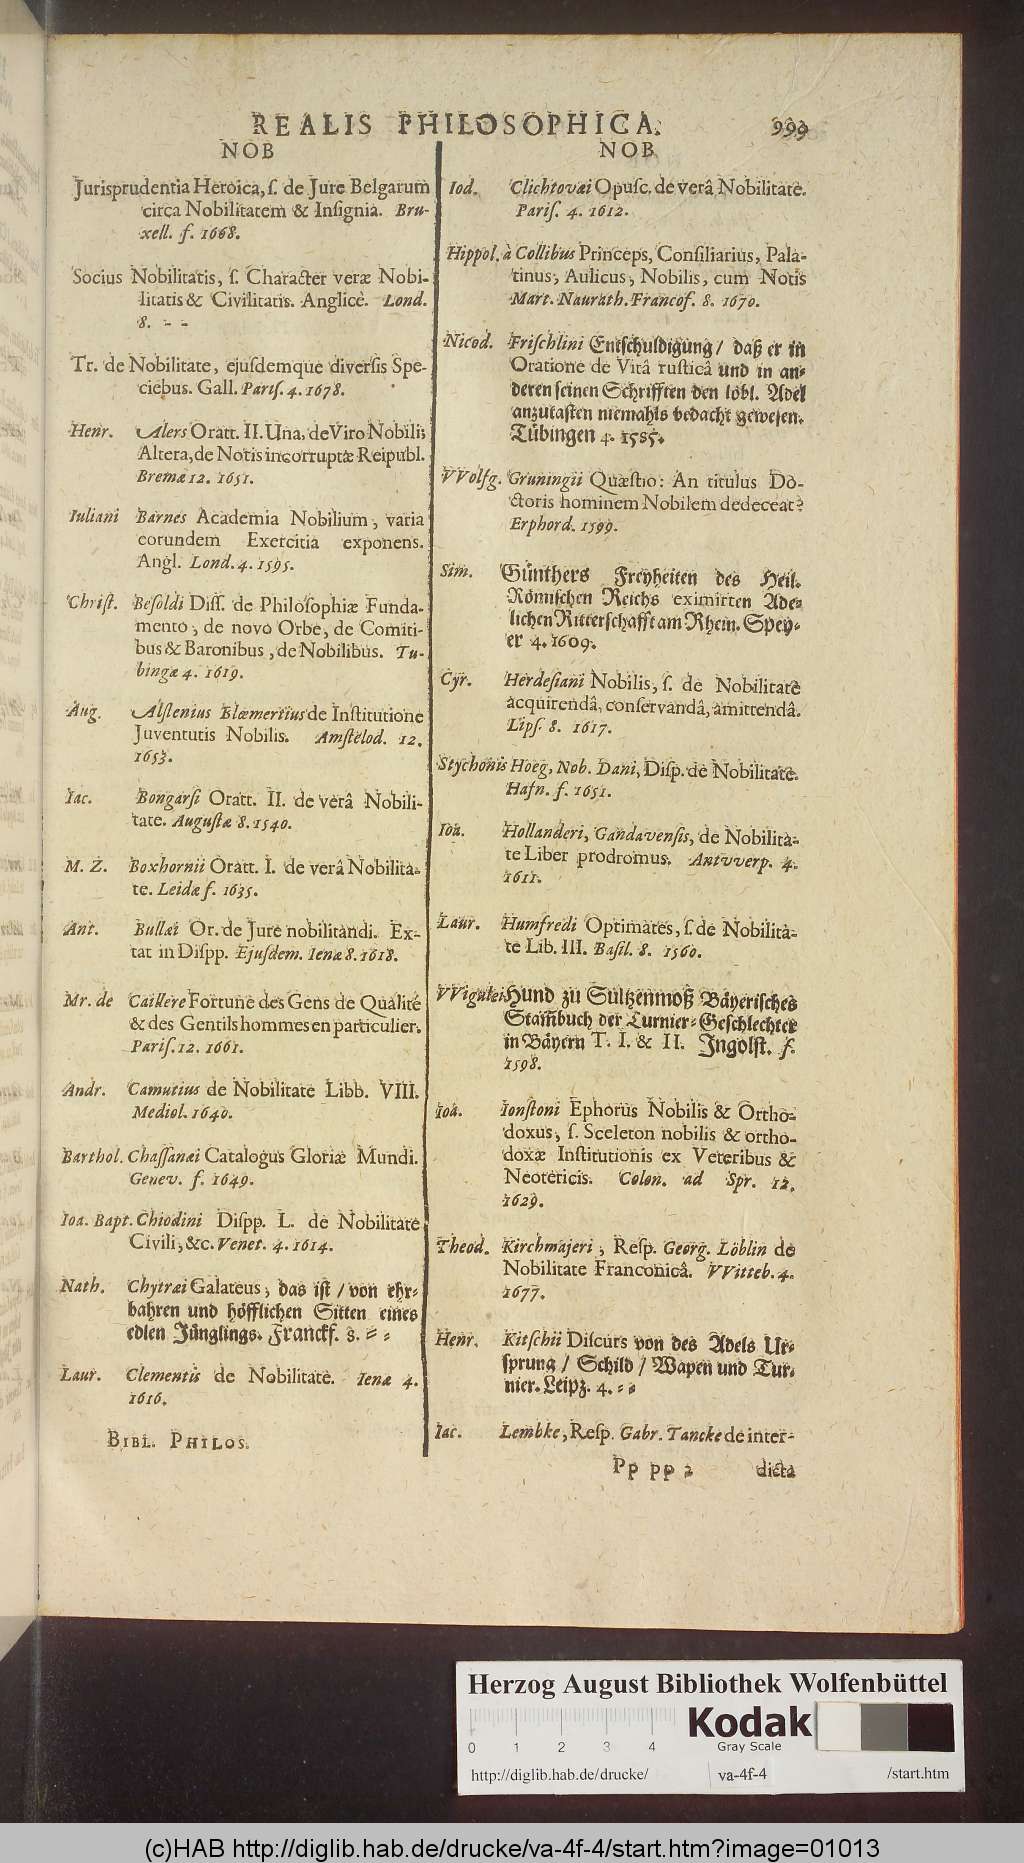 REALIS PHILOSOPHICA. 999
NOB
Jurisprudentia Heroica, ſ. de Jure Belgarum
circa Nobilitatem & Inſignia. Bru-
xell. f. 1668.
Socius Nobilitatis, ſ. Character veræ Nobi-
litatis & Civilitatis. Anglicè. Lond.
8. - -
Tr. de Nobilitate, ejuſdemque diverſis Spe-
ciebus. Gall. Pariſ. 4. 1678.
Henr. Alers Oratt. II. Una, de Viro Nobili;
Altera, de Notis incorruptæ Reipubl.
Bremæ 12. 1651.
Iuliani Barnes Academia Nobilium, varia
eorundem Exercitia exponens.
Angl. Lond. 4. 1595.
Chriſt. Beſoldi Diſſ. de Philoſophiæ Funda-
mento, de novo Orbe, de Comiti-
bus & Baronibus, de Nobilibus. Tu-
bingæ 4. 1619.
Aug. Alſtenius Blœmertius de Inſtitutione
Juventutis Nobilis. Amſtelod. 12.
1653.
Iac. Bongarſi Oratt. II. de verâ Nobili-
tate. Auguſtæ 8. 1540.
M. Z. Boxhornii Oratt. I. de verâ Nobilita-
te. Leidæ f. 1635.
Ant. Bullæi Or. de Jure nobilitandi. Ex-
tat in Diſpp. Ejuſdem. Ienæ 8. 1618.
Mr. de Caillere Fortune des Gens de Qualité
& des Gentils hommes en particulier.
Pariſ. 12. 1661.
Andr. Camutius de Nobilitate Libb. VIII.
Mediol. 1640.
Barthol. Chaſſanæi Catalogus Gloriæ Mundi.
Genev. f. 1649.
Ioa. Bapt. Chiodini Diſpp. L. de Nobilitate
Civili, &c. Venet. 4. 1614.
Nath. Chytræi Galateus, das iſt / von ehr-
bahren und höfflichen Sitten eines
edlen Jünglings. Franckf. 8. - -
Laur. Clementis de Nobilitate. Ienæ 4.
1616.
BIBL. PHILOS.
NOB
Iod. Clichtovæi Opuſc. de verâ Nobilitate.
Pariſ. 4. 1612.
Hippol. à Collibus Princeps, Conſiliarius, Pala-
tinus, Aulicus, Nobilis, cum Notis
Mart. Naurath. Francof. 8. 1670.
Nicod. Friſchlini Entſchuldigung / daß er in
Oratione de Vitâ ruſticâ und in an-
deren ſeinen Schrifften den löbl. Adel
anzutaſten niemahls bedacht geweſen.
Tübingen 4. 1585.
VVolfg. Gruningii Quæſtio: An titulus Do-
ctoris hominem Nobilem dedeceat?
Erphord. 1599.
Sim. Günthers Freyheiten des Heil.
Römiſchen Reichs eximirten Ade-
lichen Ritterſchafft am Rhein. Spey-
er 4. 1609.
Cyr. Herdeſiani Nobilis, ſ. de Nobilitate
acquirendâ, conſervandâ, amittendâ.
Lipſ. 8. 1617.
Stychonis Hoeg, Nob. Dani, Diſp. de Nobilitate.
Hafn. f. 1651.
Ioa. Hollanderi, Gandavenſis, de Nobilita-
te Liber prodromus. Antvverp. 4.
1611.
Laur. Humfredi Optimates, ſ. de Nobilita-
te Lib. III. Baſil. 8. 1560.
VVigulei Hund zu Sültzenmoß Bäyeriſches
Stam̃buch der Turnier-Geſchlechter
in Bäyern T. I. & II. Ingolſt. f.
1598.
Ioa. Ionſtoni Ephorus Nobilis & Ortho-
doxus, ſ. Sceleton nobilis & ortho-
doxæ Inſtitutionis ex Veteribus &
Neotericis. Colon. ad Spr. 12.
1629.
Theod. Kirchmajeri, Reſp. Georg. Löblin de
Nobilitate Franconicâ. VVitteb. 4.
1677.
Henr. Kitſchii Diſcurs von des Adels Ur-
ſprung / Schild / Wapen und Tur-
nier. Leipz. 4. - -
Iac. Lembke, Reſp. Gabr. Tancke de inter-
Pp pp 2 dicta
Herzog August Bibliothek Wolfenbüttel
Kodak
Gray Scale
0 1 2 3 4
http://diglib.hab.de/drucke/ va-4f-4 /start.htm
(c)HAB http://diglib.hab.de/drucke/va-4f-4/start.htm?image=01013